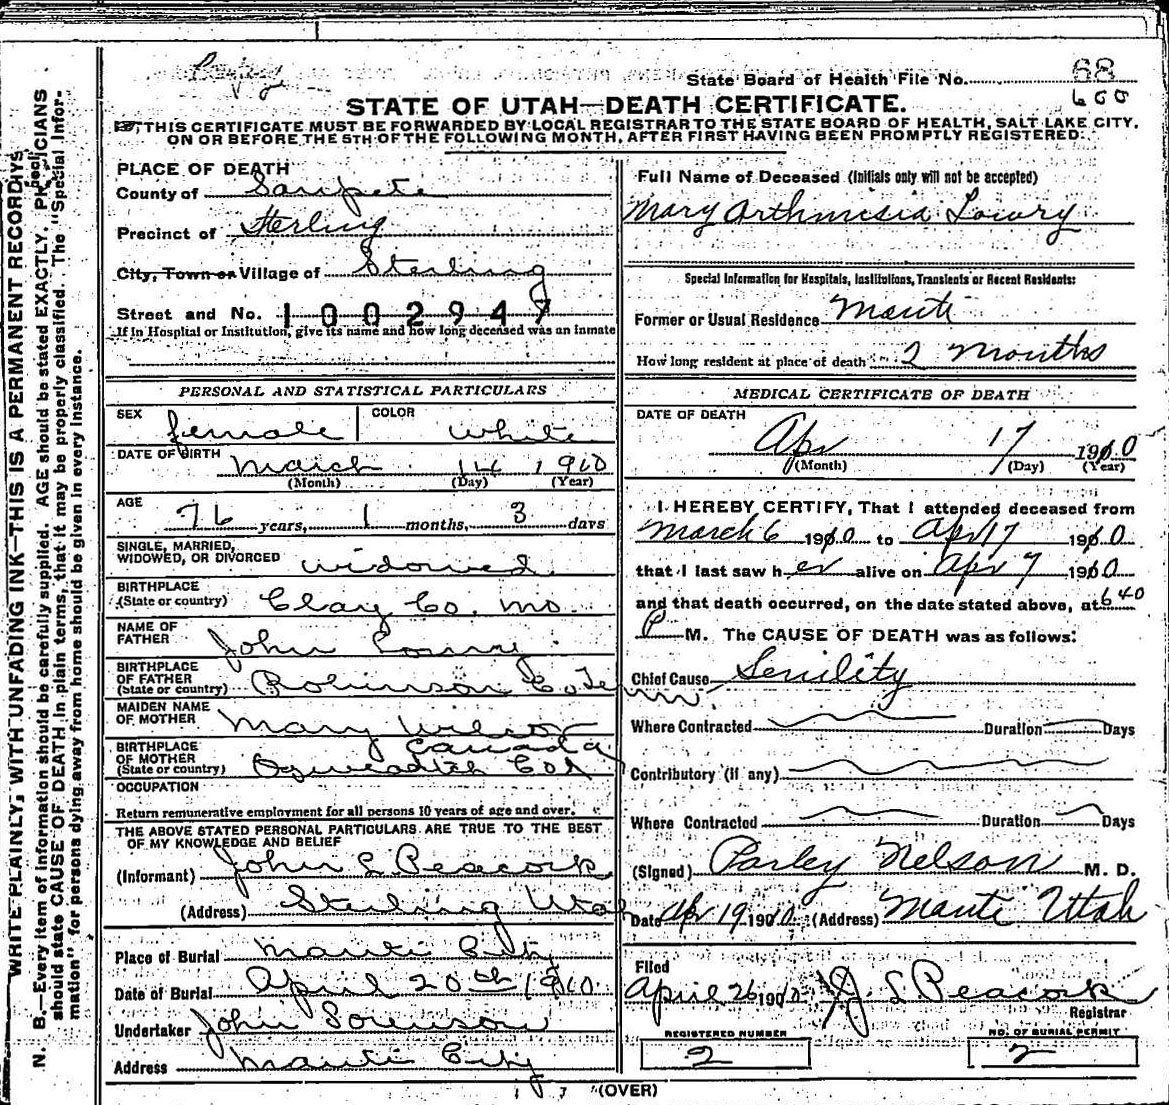 State Board of Health File No. 68
600
STATE OF UTAH—DEATH CERTIFICATE.
THIS CERTIFICATE MUST BE FORWARDED BY LOCAL REGISTRAR TO THE STATE BOARD OF HEALTH, SALT LAKE CITY,
ON OR BEFORE THE 5TH OF THE FOLLOWING MONTH, AFTER FIRST HAVING BEEN PROMPTLY REGISTERED.
PLACE OF DEATH
County of Sanpete
Precinct of Sterling
City, Town or Village of Sterling
Street and No. 1002947
If in Hospital or Institution, give its name and how long deceased was an inmate
PERSONAL AND STATISTICAL PARTICULARS
SEX female COLOR white
DATE OF BIRTH March 14 1910
(Month) (Day) (Year)
AGE 76 years, 1 months, 3 days
SINGLE, MARRIED,
WIDOWED, OR DIVORCED widowed
BIRTHPLACE
(State or country) Clay Co. Mo.
NAME OF
FATHER John Lowry
BIRTHPLACE
OF FATHER
(State or country) Robinson Co. Te
MAIDEN NAME
OF MOTHER Mary Wilcox
BIRTHPLACE
OF MOTHER Canada
(State or country)
OCCUPATION
Return remunerative employment for all persons 10 years of age and over.
THE ABOVE STATED PERSONAL PARTICULARS ARE TRUE TO THE BEST
OF MY KNOWLEDGE AND BELIEF
(Informant) John L Peacock
(Address) Sterling Utah
Place of Burial Manti City
Date of Burial April 20th 1910
Undertaker John Sorenson
Address Manti City
Full Name of Deceased (Initials only will not be accepted)
Mary Arthmisia Lowry
Special Information for Hospitals, Institutions, Transients or Recent Residents:
Former or Usual Residence Manti
How long resident at place of death 2 Months
MEDICAL CERTIFICATE OF DEATH
DATE OF DEATH
Apr 17 1910
(Month) (Day) (Year)
I HEREBY CERTIFY, That I attended deceased from
March 6 1910 to Apr 17 1910
that I last saw her alive on Apr 7 1910
and that death occurred, on the date stated above, at 6 40
P M. The CAUSE OF DEATH was as follows:
Chief Cause Senility
Where Contracted Duration Days
Contributory (if any)
Where Contracted Duration Days
(Signed) Parley Nelson M. D.
Date Apr 19 1910 (Address) Manti Utah
Filed
April 26 1910 J L Peacock
Registrar
REGISTERED NUMBER
2
NO. OF BURIAL PERMIT
2
(OVER)
WRITE PLAINLY, WITH UNFADING INK—THIS IS A PERMANENT RECORD
N. B.—Every item of information should be carefully supplied. AGE should be stated EXACTLY. PHYSICIANS
should state CAUSE OF DEATH in plain terms, that it may be properly classified. The "Special Infor-
mation" for persons dying away from home should be given in every instance.